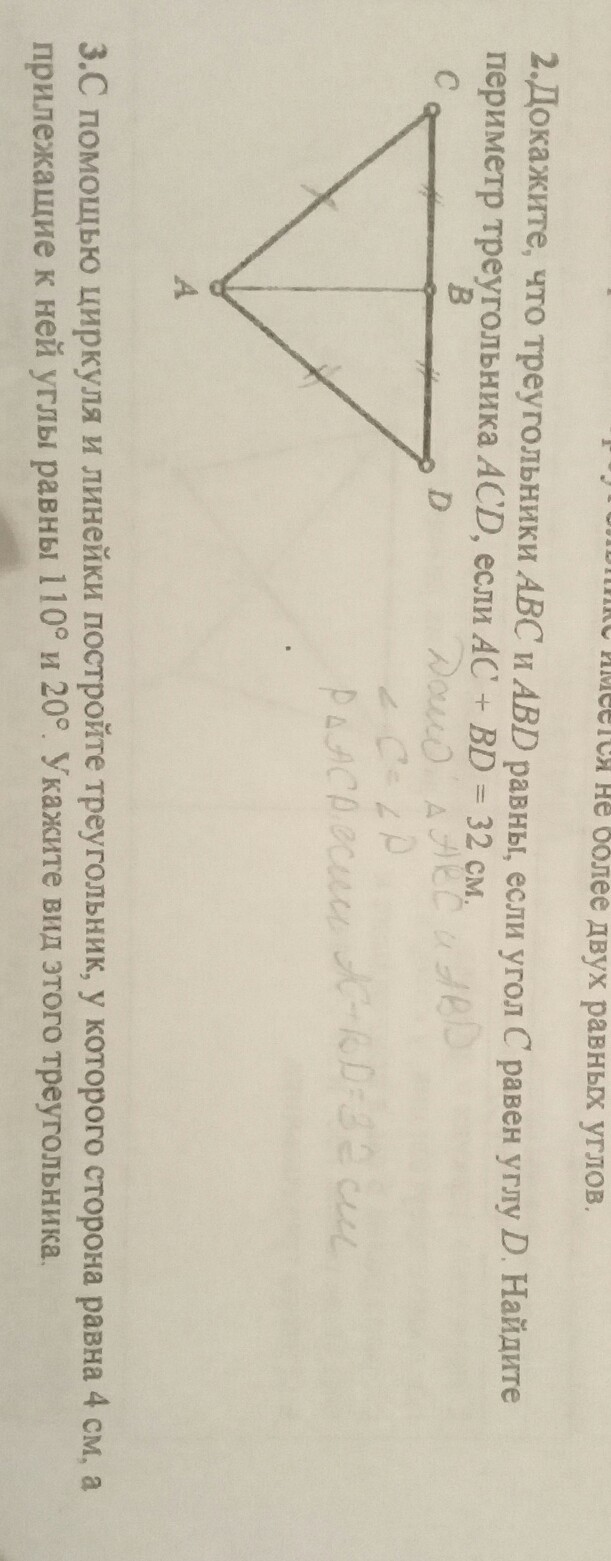 имеется не более двух равных углов.
2.Докажите, что треугольники ABC и ABD равны, если угол C равен углу D. Найдите
периметр треугольника ACD, если AC + BD = 32 см.
C
B
D
A
Дано: △ ABC и ABD
∠ C = ∠ D
P△ACD, если AC+BD=32 см
3.С помощью циркуля и линейки постройте треугольник, у которого сторона равна 4 см, а
прилежащие к ней углы равны 110° и 20°. Укажите вид этого треугольника.